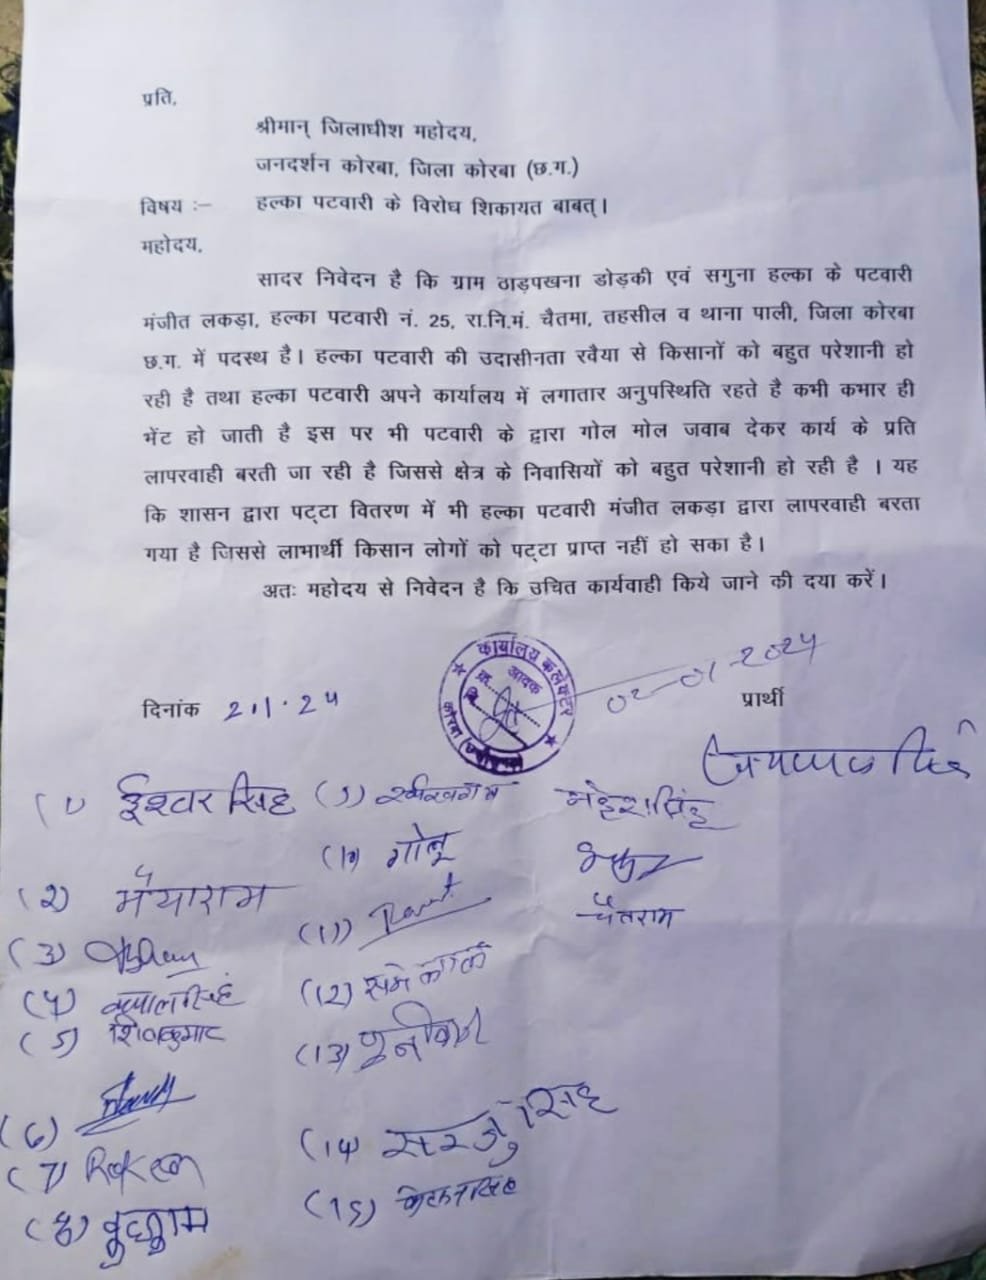 प्रति,
श्रीमान् जिलाधीश महोदय,
जनदर्शन कोरबा, जिला कोरबा (छ.ग.)
विषय :– हल्का पटवारी के विरोध शिकायत बाबत्।
महोदय,
सादर निवेदन है कि ग्राम ठाड़पखना डोड़की एवं सगुना हल्का के पटवारी
मंजीत लकड़ा, हल्का पटवारी नं. 25, रा.नि.मं. चैतमा, तहसील व थाना पाली, जिला कोरबा
छ.ग. में पदस्थ है। हल्का पटवारी की उदासीनता रवैया से किसानों को बहुत परेशानी हो
रही है तथा हल्का पटवारी अपने कार्यालय में लगातार अनुपस्थिति रहते है कभी कभार ही
भेंट हो जाती है इस पर भी पटवारी के द्वारा गोल मोल जवाब देकर कार्य के प्रति
लापरवाही बरती जा रही है जिससे क्षेत्र के निवासियों को बहुत परेशानी हो रही है । यह
कि शासन द्वारा पट्टा वितरण में भी हल्का पटवारी मंजीत लकड़ा द्वारा लापरवाही बरता
गया है जिससे लाभार्थी किसान लोगों को पट्टा प्राप्त नहीं हो सका है।
अतः महोदय से निवेदन है कि उचित कार्यवाही किये जाने की दया करें।
कार्यालय कलेक्टर
आवक
क्र.
कोरबा
02-01-2024
दिनांक 2.1.24 प्रार्थी
(1) ईश्वर सिंह (9) महेश सिंह
(10) गोलू
(2) मैयाराम
(11) चैतराम
(3)
(4) (12)
(5) शिवकुमार
(13)
(6)
(14) सरजु सिंह
(7)
(15)
(8) बुधराम